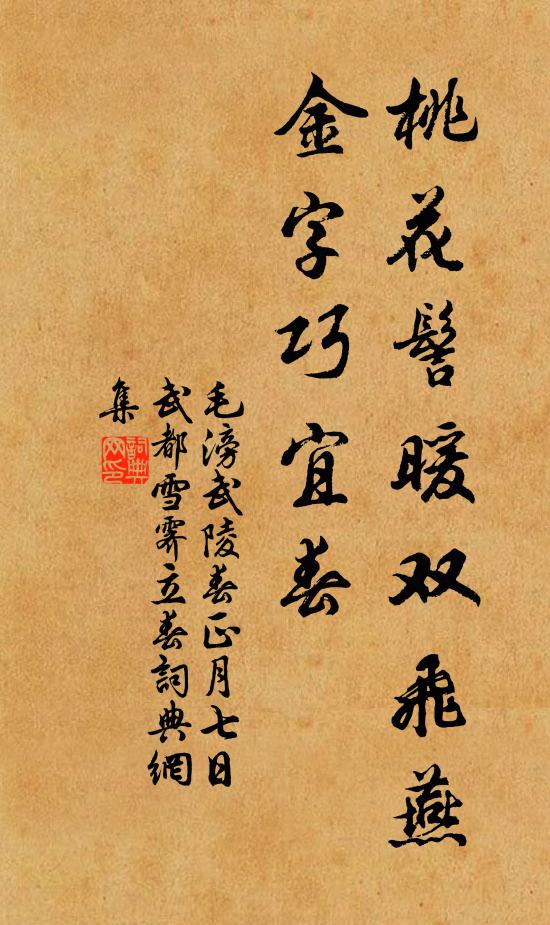 桃花髻暖双飛燕
金字巧宜春
毛滂武陵春正月七日
武都雪霽立春詞典網
集
詞典網印